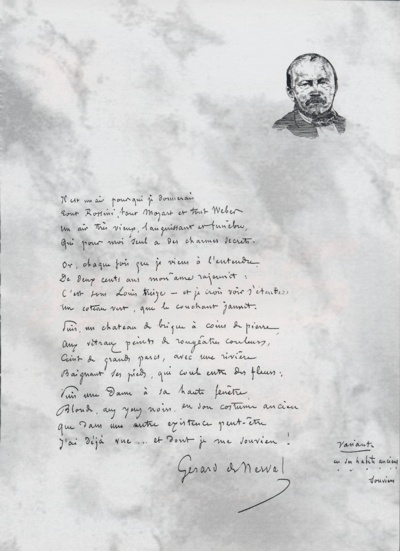 Il est un air pour qui je donnerais
Tout Rossini, tout Mozart et tout Weber
Un air très vieux, languissant et funèbre,
Qui pour moi seul a des charmes secrets.
Or, chaque fois que je viens à l'entendre
De deux cents ans mon âme rajeunit :
C'est sous Louis treize — et je crois voir s'étendre
Un coteau vert, que le couchant jaunit.
Puis, un chateau de brique à coins de pierre
Aux vitraux peints de rougeâtres couleurs,
Ceint de grands parcs, avec une rivière
Baignant ses pieds, qui coule entre des fleurs ;
Puis une Dame à sa haute fenêtre
Blonde, aux yeux noirs, en son costume ancien
que dans une autre existence peut-être
J'ai déjà vue... et dont je me souviens !
Gérard de Nerval
Variante
en ses habits anciens
souviens